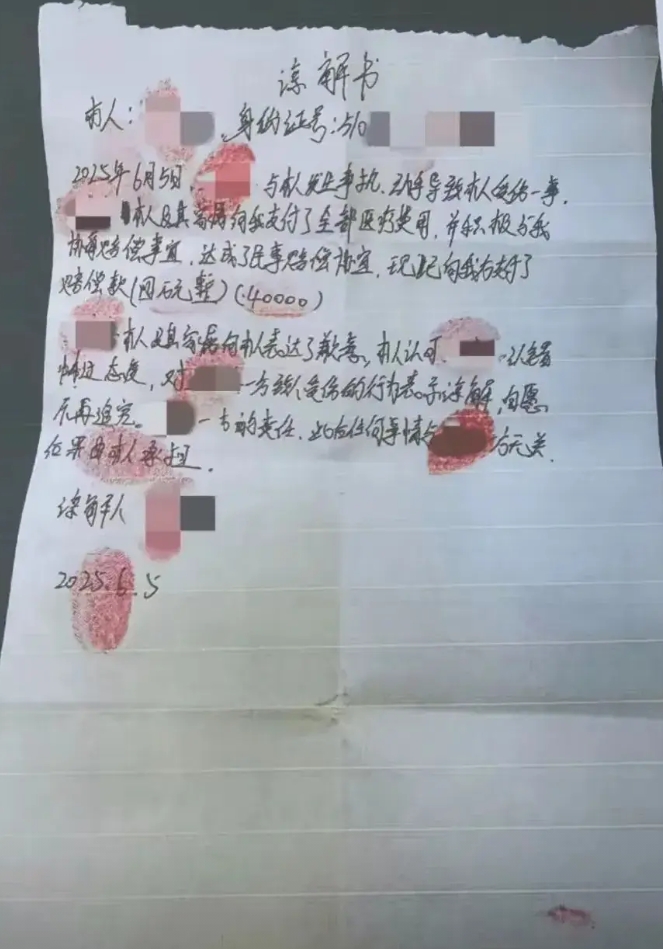 谅解书
本人: 身份证号:510
2025年6月5日, 与本人发生争执、动手导致本人受伤一事,
本人及其家属向我支付了全部医疗费用,并积极与我
赔偿事宜,达成了民事赔偿协议,现已向我方支付了
赔偿款(四万元整)(40000)
本人及其家属向本人表达了歉意,本人认可
态度,对 一方致人受伤的行为表示谅解,自愿
不再追究 一方的责任,此后任何事情与 方无关.
后果由本人承担.
谅解人
2025.6.5